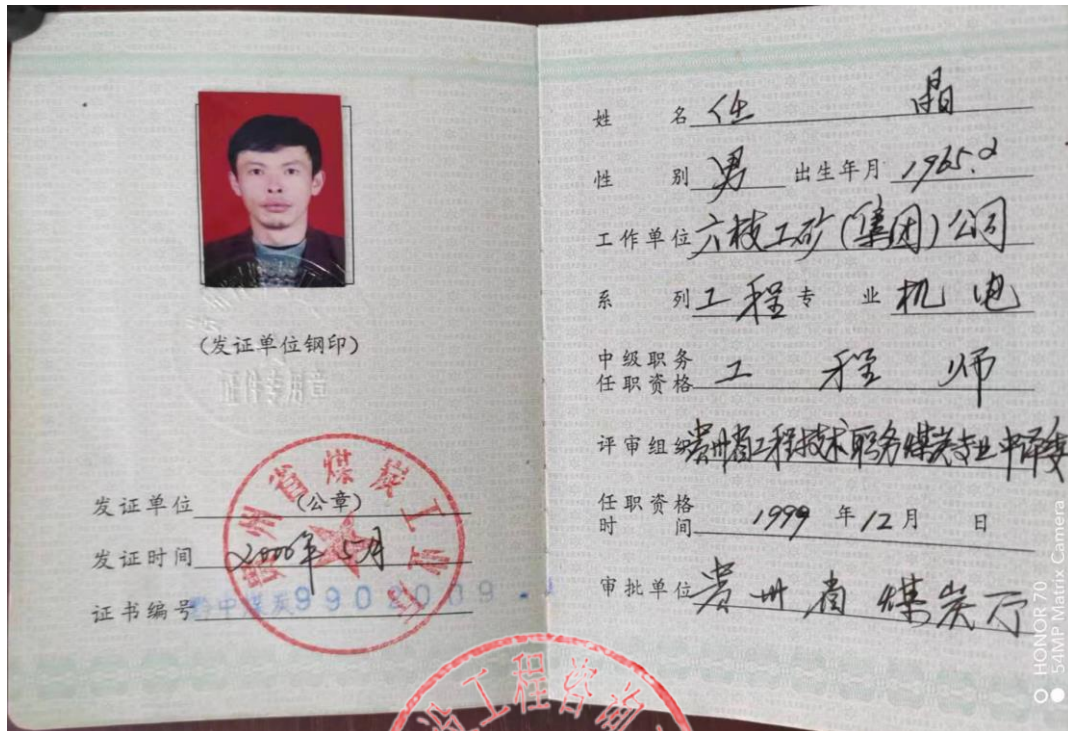 (发证单位钢印)
证件专用章
贵州省煤炭工业厅
发证单位 (公章)
发证时间 2000年5月
证书编号 黔中煤炭9902009
姓名 任晶
性别 男 出生年月 1965.2
工作单位 六枝工矿(集团)公司
系列 工程 专业 机电
中级职务
任职资格 工程师
评审组织 贵州省工程技术职务煤炭专业中评委
任职资格
时间 1999年12月 日
审批单位 贵州省煤炭厅
工程咨询
HONOR 70
54MP Matrix Camera